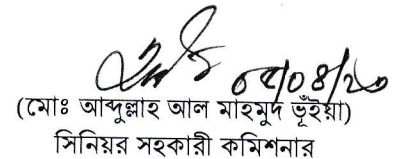 ০৫/০৪/২০
(মোঃ আব্দুল্লাহ আল মাহমুদ ভূঁইয়া)
সিনিয়র সহকারী কমিশনার